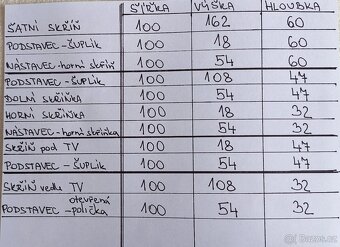 ŠÍŘKA VÝŠKA HLOUBKA
ŠATNÍ SKŘÍŇ 100 162 60
PODSTAVEC-ŠUPLÍK 100 18 60
NÁSTAVEC-horní skříň 100 54 60
PODSTAVEC-ŠUPLÍK 100 108 47
DOLNÍ SKŘÍŇKA 100 54 47
HORNÍ SKŘÍŇKA 100 18 32
NÁSTAVEC-horní skříňka 100 54 32
SKŘÍŇ pod TV 100 18 47
PODSTAVEC-ŠUPLÍK 100 54 47
SKŘÍŇ vedle TV 100 108 32
otevřená
PODSTAVEC-polička 100 54 32